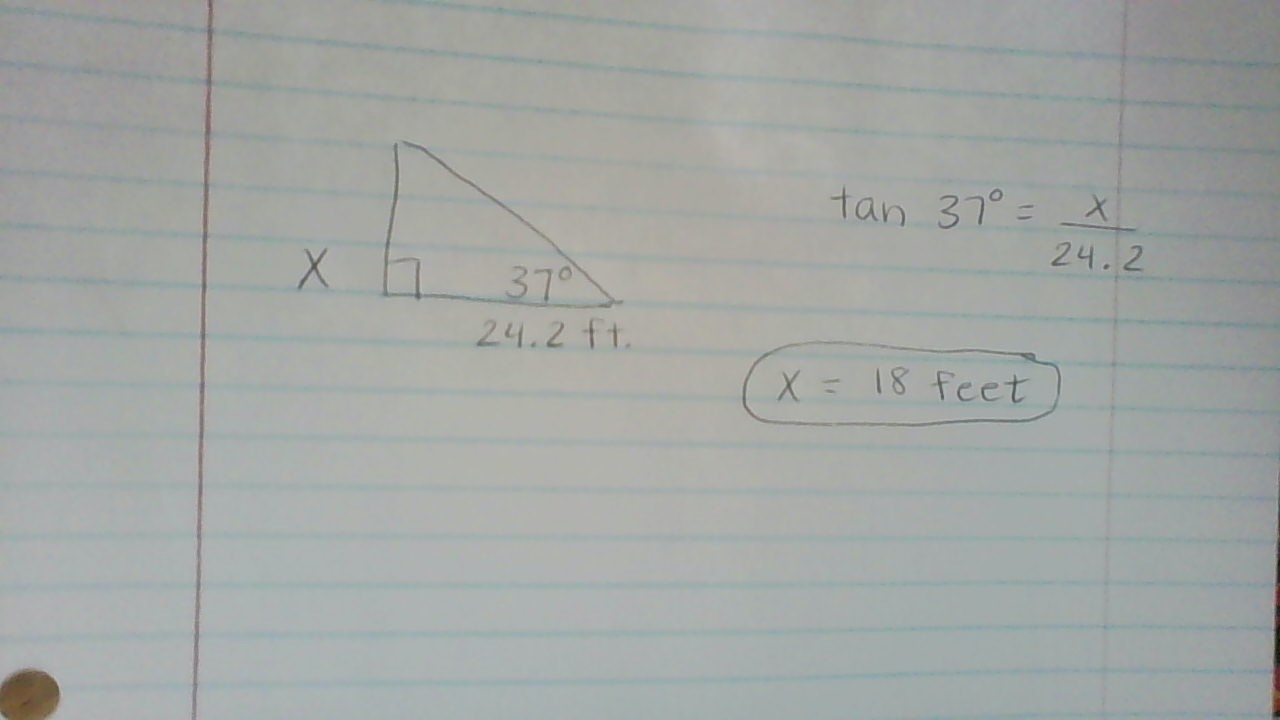 tan 37° = x/24.2
X
37°
24.2 ft.
X = 18 feet